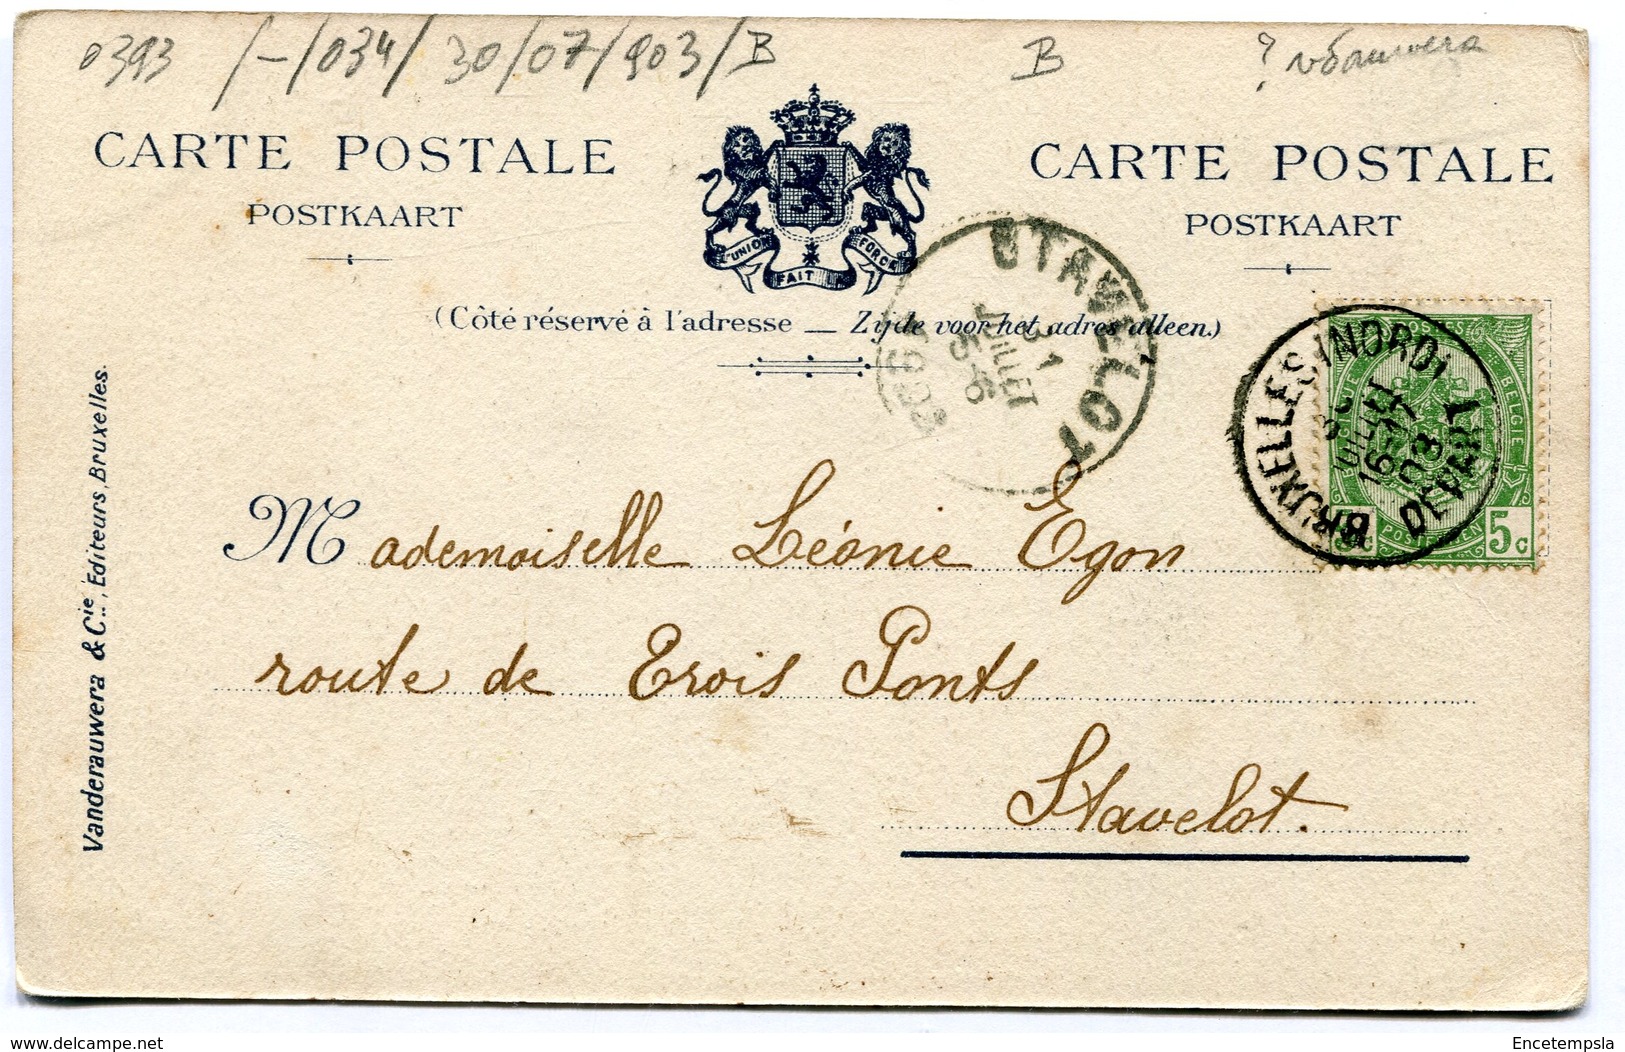 0393 /-/034/ 30/07/903/B B ? vdauwera
CARTE POSTALE
POSTKAART
CARTE POSTALE
POSTKAART
L'UNION FAIT FORCE
(Côté réservé à l'adresse — Zijde voor het adres alleen.)
STAVELOT
31
JUILLET
5-6
1903
BRUXELLES (NORD)
JUILLET
16-17
03
DÉPART
B
POSTES
BELGIE
POSTERIJEN
5c
5c
Mademoiselle Léonie Egon
route de Trois Ponts
Stavelot.
Vanderauwera & Cie, Editeurs, Bruxelles.
delcampe.net
Encetempsla